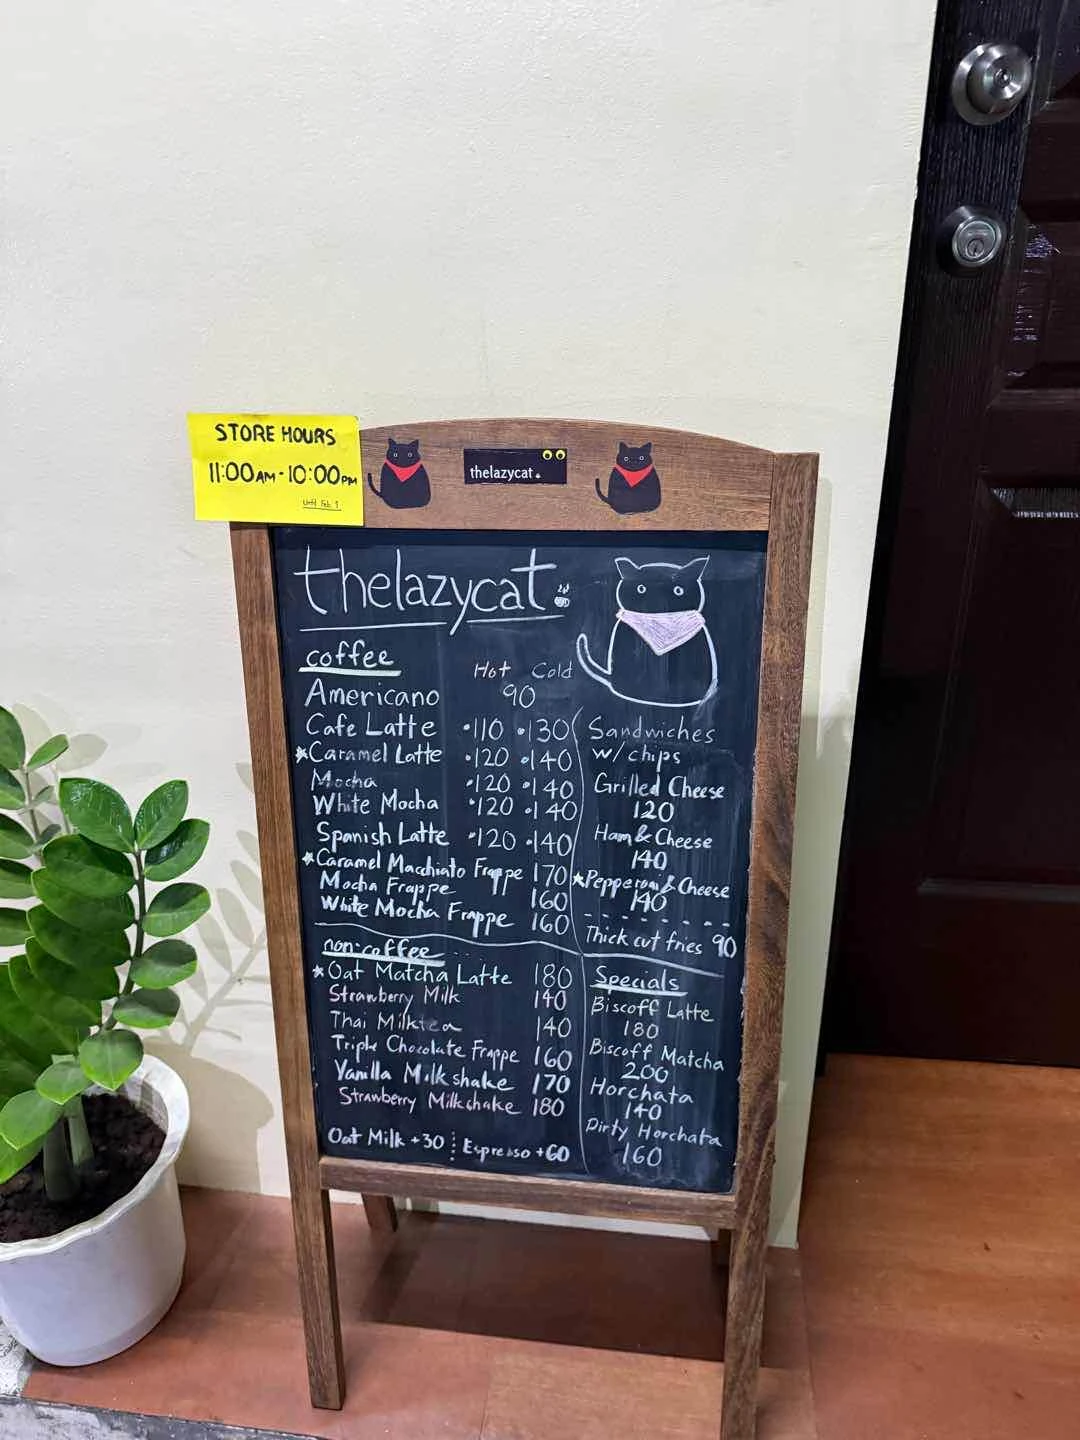 STORE HOURS
11:00AM - 10:00PM
Until Feb. 1
thelazycat
thelazycat
coffee
Hot Cold
Americano 90
Cafe Latte 110 130
★Caramel Latte 120 140
Mocha 120 140
White Mocha 120 140
Spanish Latte 120 140
★Caramel Macchiato Frappe 170
Mocha Frappe 160
White Mocha Frappe 160
non-coffee
★Oat Matcha Latte 180
Strawberry Milk 140
Thai Milktea 140
Triple Chocolate Frappe 160
Vanilla Milkshake 170
Strawberry Milkshake 180
Oat Milk +30 Espresso +60
Sandwiches
w/ chips
Grilled Cheese
120
Ham & Cheese
140
★Pepperoni & Cheese
140
Thick cut fries 90
Specials
Biscoff Latte
180
Biscoff Matcha
200
Horchata
140
Dirty Horchata
160